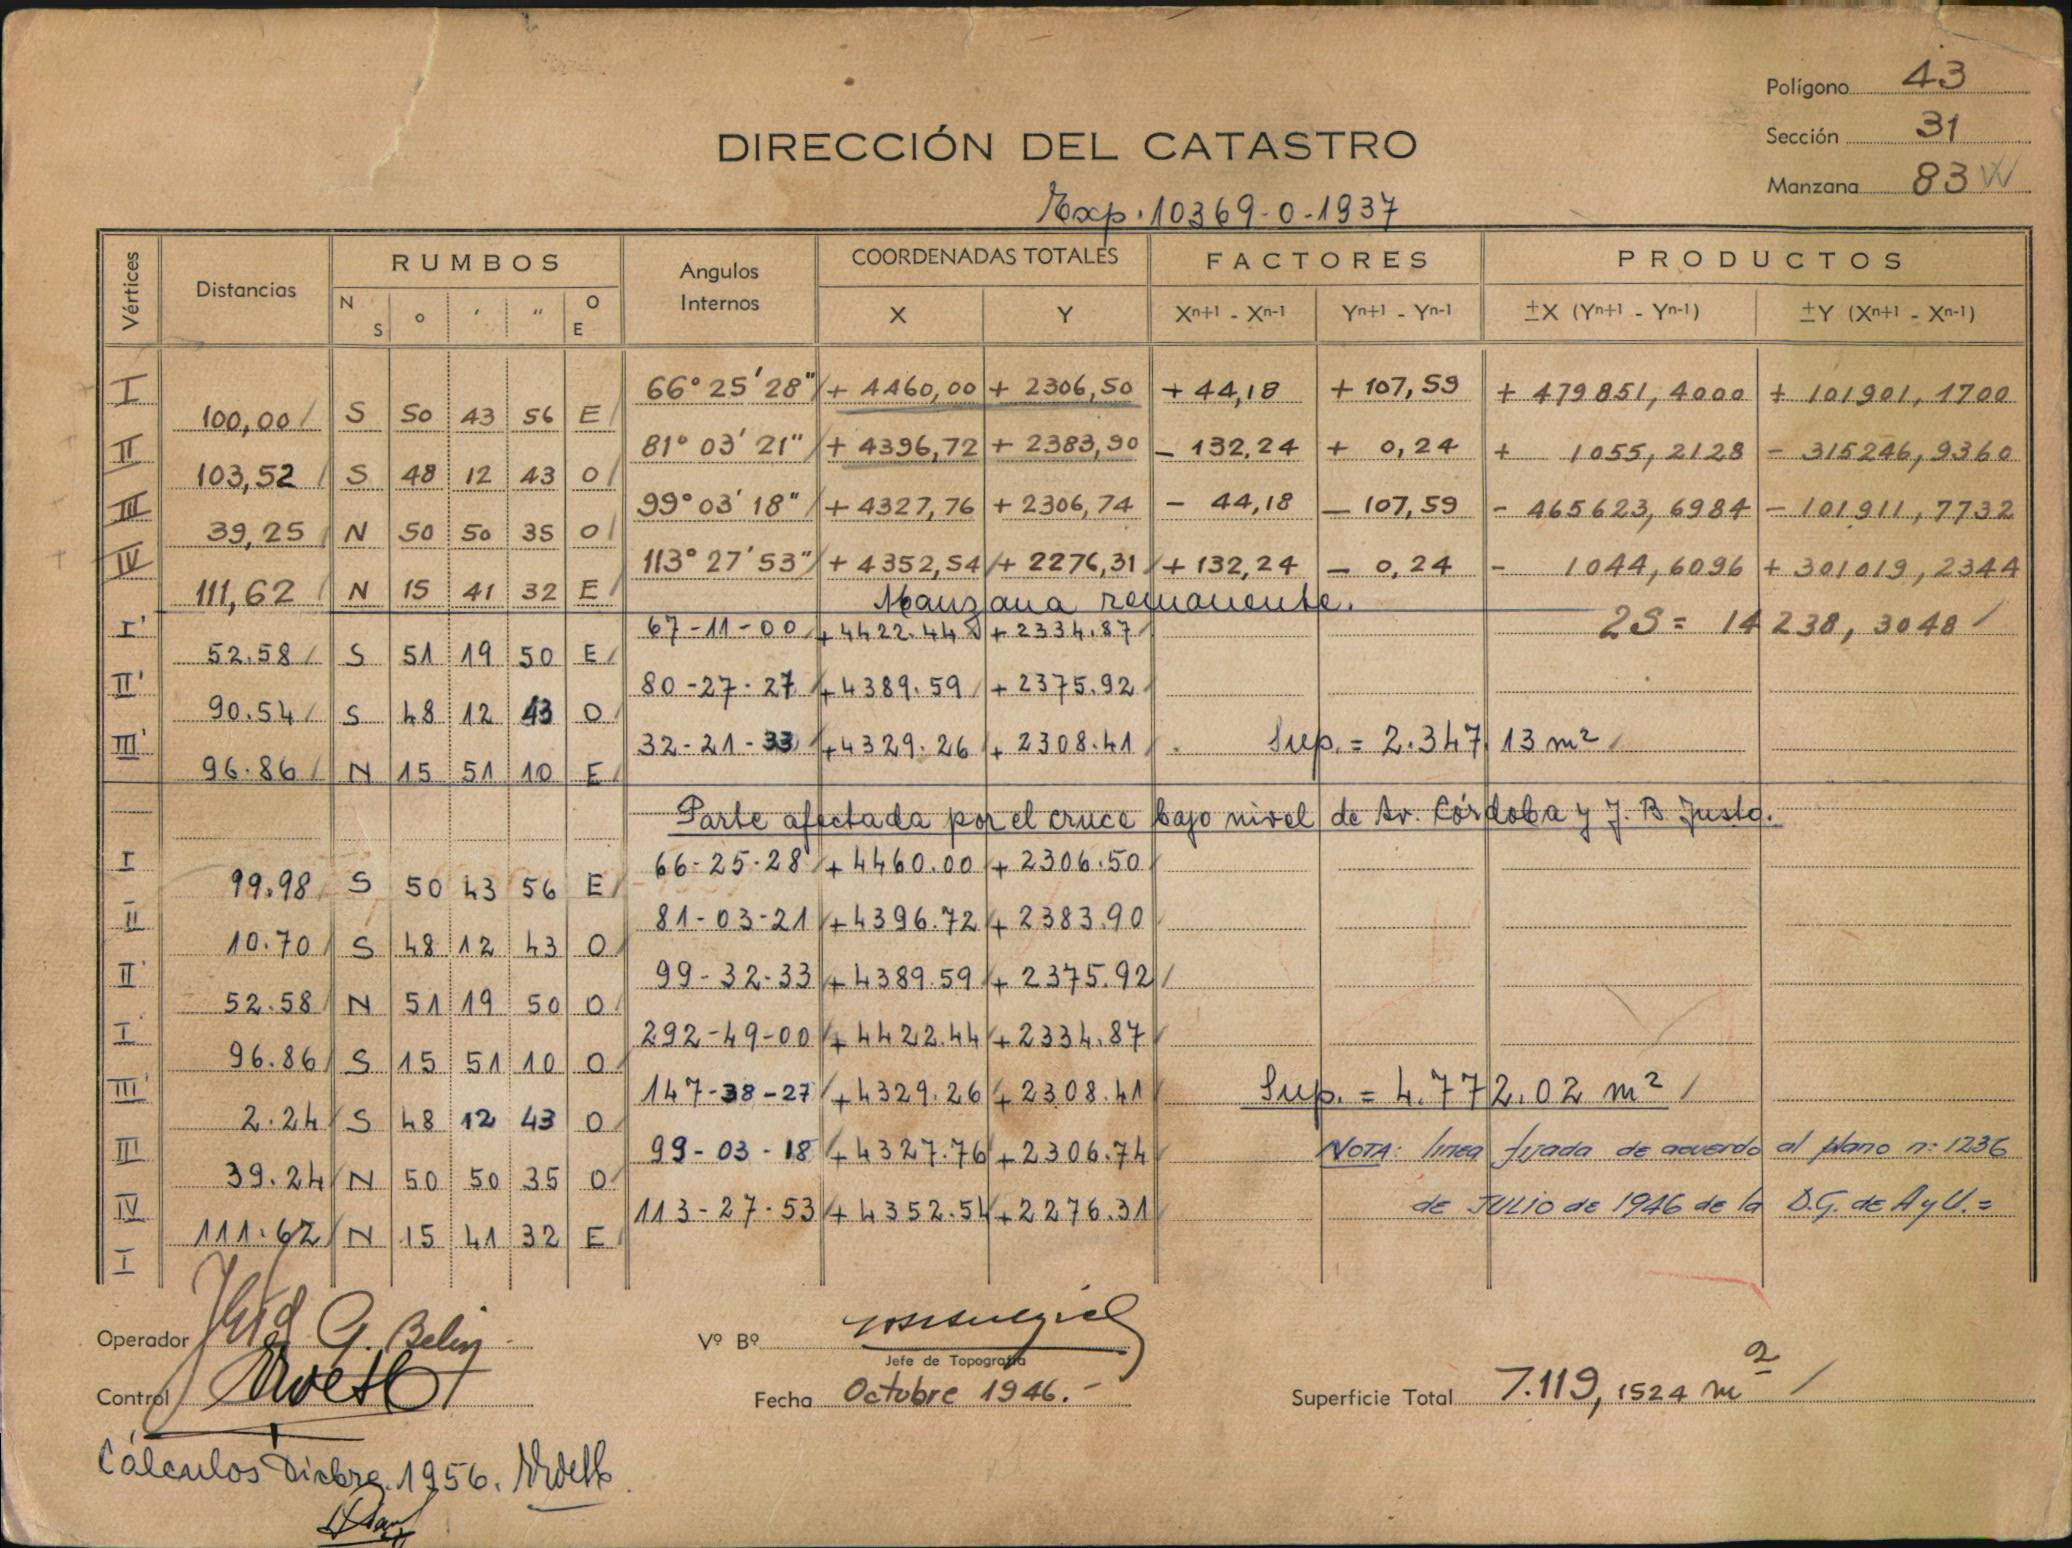 Polígono 43
Sección 31
Manzana 83 W
DIRECCIÓN DEL CATASTRO
Exp. 10369-0-1937
Vértices Distancias RUMBOS Angulos Internos COORDENADAS TOTALES FACTORES PRODUCTOS
N S ° ' " O E X Y Xn+1 - Xn-1 Yn+1 - Yn-1 ±X (Yn+1 - Yn-1) ±Y (Xn+1 - Xn-1)
I 66° 25' 28" + 4460,00 + 2306,50 + 44,18 + 107,59 + 479851,4000 + 101901,1700
100,00 S 50 43 56 E
II 81° 03' 21" + 4396,72 + 2383,90 - 132,24 + 0,24 + 1055,2128 - 315246,9360
103,52 S 48 12 43 O
III 99° 03' 18" + 4327,76 + 2306,74 - 44,18 - 107,59 - 465623,6984 - 101911,7732
39,25 N 50 50 35 O
IV 113° 27' 53" + 4352,54 + 2276,31 + 132,24 - 0,24 - 1044,6096 + 301019,2344
111,62 N 15 41 32 E
Manzana remanente.
2S = 14238,3048
I' 67-11-00 + 4422.44 + 2334.87
52.58 S 51 19 50 E
II' 80-27-27 + 4389.59 + 2375.92
90.54 S 48 12 43 O
III' 32-21-33 + 4329.26 + 2308.41 Sup. = 2.347.13 m²
96.86 N 15 51 10 E
Parte afectada por el cruce bajo nivel de Av. Córdoba y J. B. Justo.
I 66-25-28 + 4460.00 + 2306.50
99.98 S 50 43 56 E
II 81-03-21 + 4396.72 + 2383.90
10.70 S 48 12 43 O
II' 99-32-33 + 4389.59 + 2375.92
52.58 N 51 19 50 O
I' 292-49-00 + 4422.44 + 2334.87
96.86 S 15 51 10 O
III' 147-38-27 + 4329.26 + 2308.41 Sup. = 4.772.02 m²
2.24 S 48 12 43 O
III 99-03-18 + 4327.76 + 2306.74 NOTA: linea fijada de acuerdo al plano n: 1236
39.24 N 50 50 35 O
IV 113-27-53 + 4352.54 + 2276.31 de JULIO de 1946 de la D.G. de A y U.=
111.62 N 15 41 32 E
I
Operador G. Belin
Vº Bº
Jefe de Topografía
Control
Fecha Octubre 1946.-
Superficie Total 7.119,1524 m²
Cálculos Dicbre. 1956.